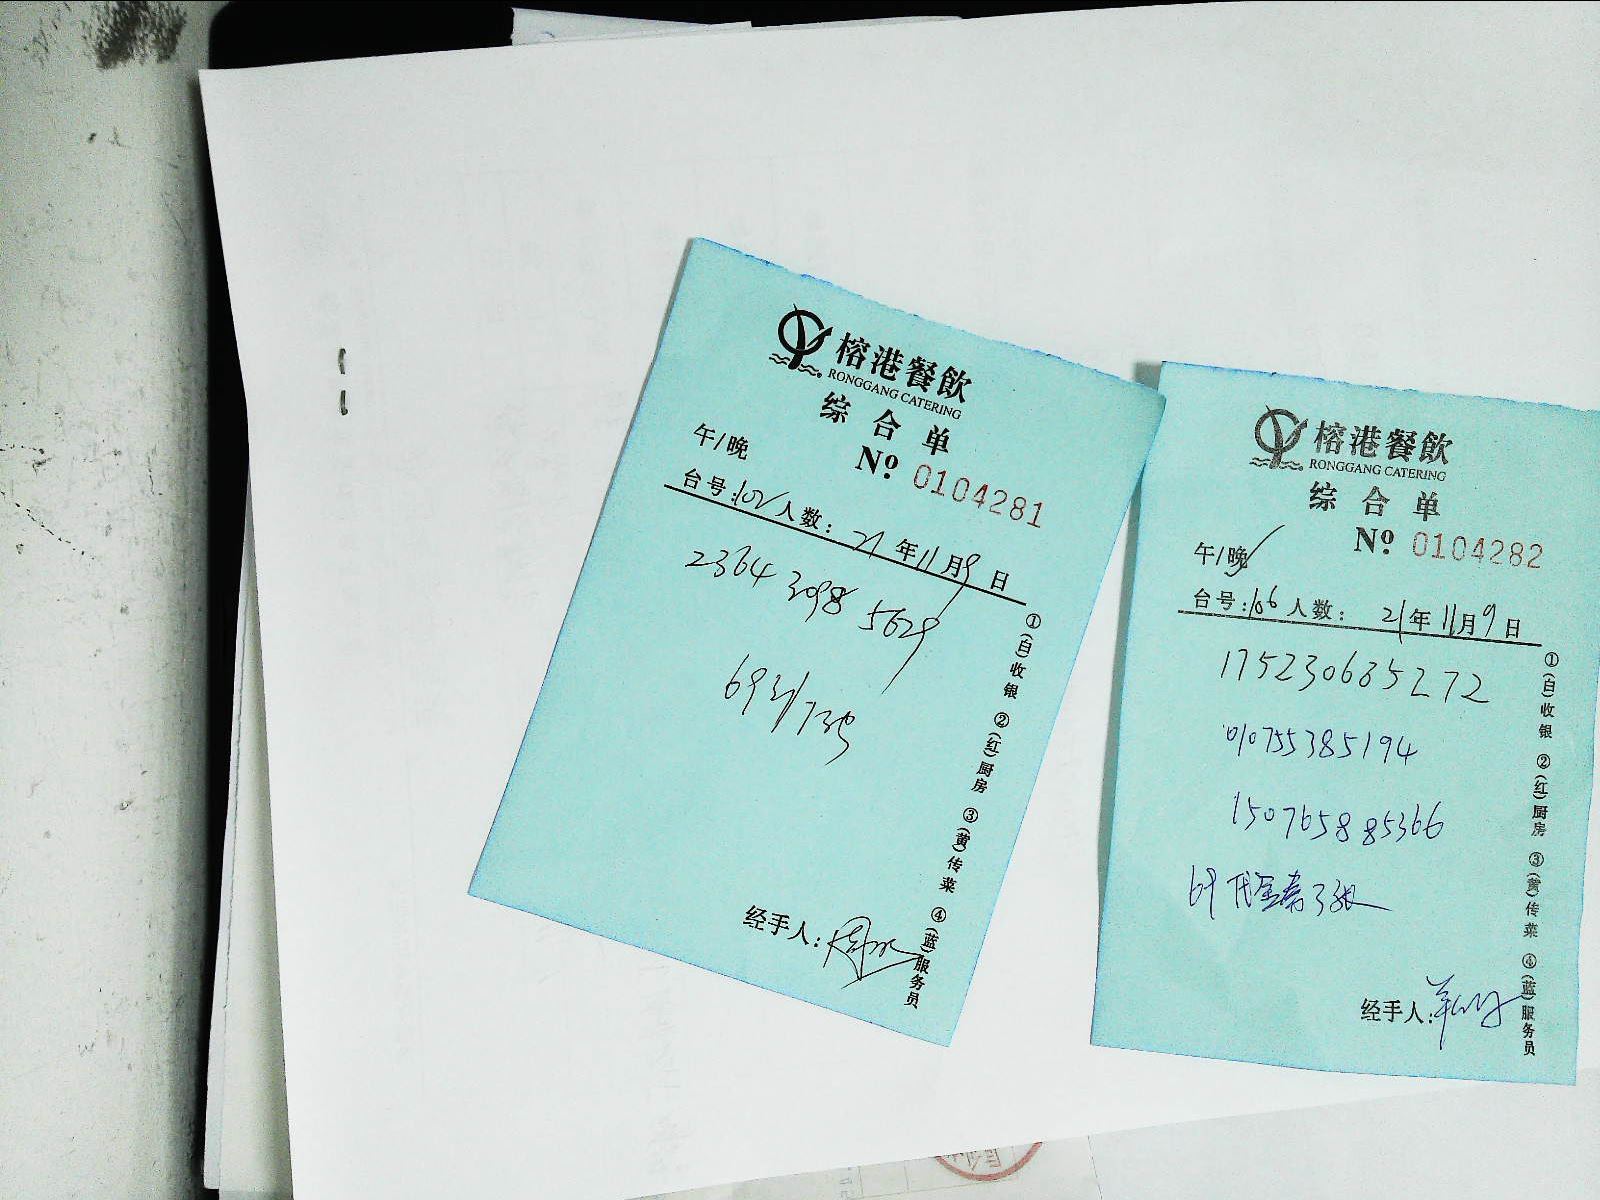 榕港餐飲
RONGGANG CATERING
综合单
午/晚
Nº 0104281
台号:102 人数: 21年11月9日
2364 3098 5629
69
①(自)收银 ②(红)厨房 ③(黄)传菜 ④(蓝)服务员
经手人:
榕港餐飲
RONGGANG CATERING
综合单
Nº 0104282
午/晚
台号:106 人数: 21年11月9日
175230685272
010755385194
150765885366
69代金券3张
①(自)收银 ②(红)厨房 ③(黄)传菜 ④(蓝)服务员
经手人: